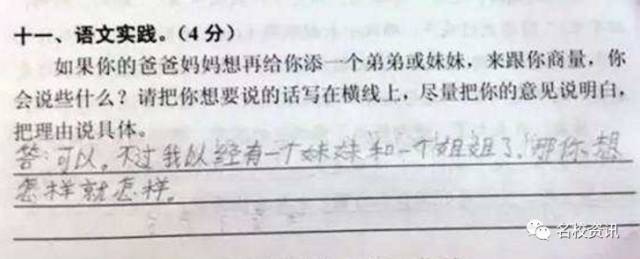 十一、语文实践。(4分)
如果你的爸爸妈妈想再给你添一个弟弟或妹妹，来跟你商量，你
会说些什么？请把你想要说的话写在横线上，尽量把你的意见说明白，
把理由说具体。
答：可以，不过我以经有一个妹妹和一个姐姐了，那你想
怎样就怎样。
名校资讯